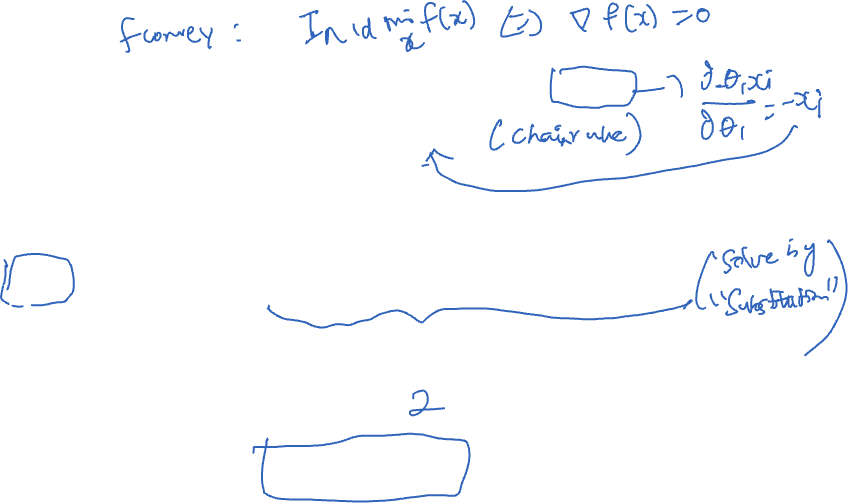 f convex : Find min f(x) ⇔ ∇ f(x) = 0
x
→ ∂-θ₁xi
∂θ₁ = -xi
(chain rule)
(solve by
"substitution")
2